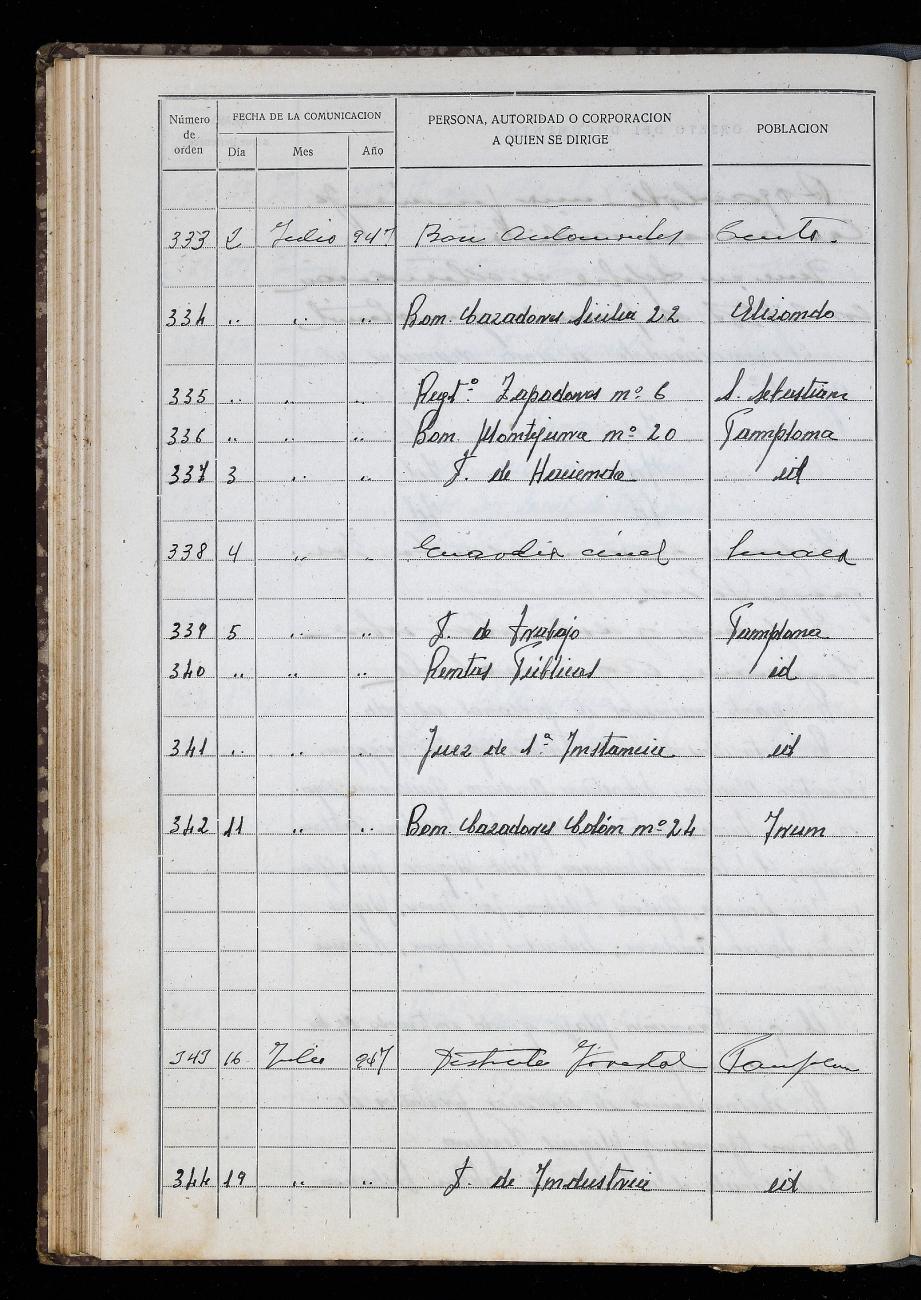 Número de orden FECHA DE LA COMUNICACION PERSONA, AUTORIDAD O CORPORACION A QUIEN SE DIRIGE POBLACION
Día Mes Año
333 2 Julio 947 Bon Automoviles
334 .. .. .. Bon. Cazadores Sicilia 22 Elizondo
335 .. .. .. Regtº. Zapadores nº 6 S. Sebastian
336 .. .. .. Bon. Montejurra nº 20 Pamplona
337 3 .. .. D. de Hacienda id
338 4 .. .. Guardia civil
339 5 .. .. D. de Trabajo Pamplona
340 .. .. .. Rentas Públicas id
341 .. .. .. Juez de 1ª Instancia id
342 11 .. .. Bon. Cazadores Colón nº 24 Irun
343 16 Julio 947 Distrito Forestal Pamplona
344 19 .. .. D. de Industria id